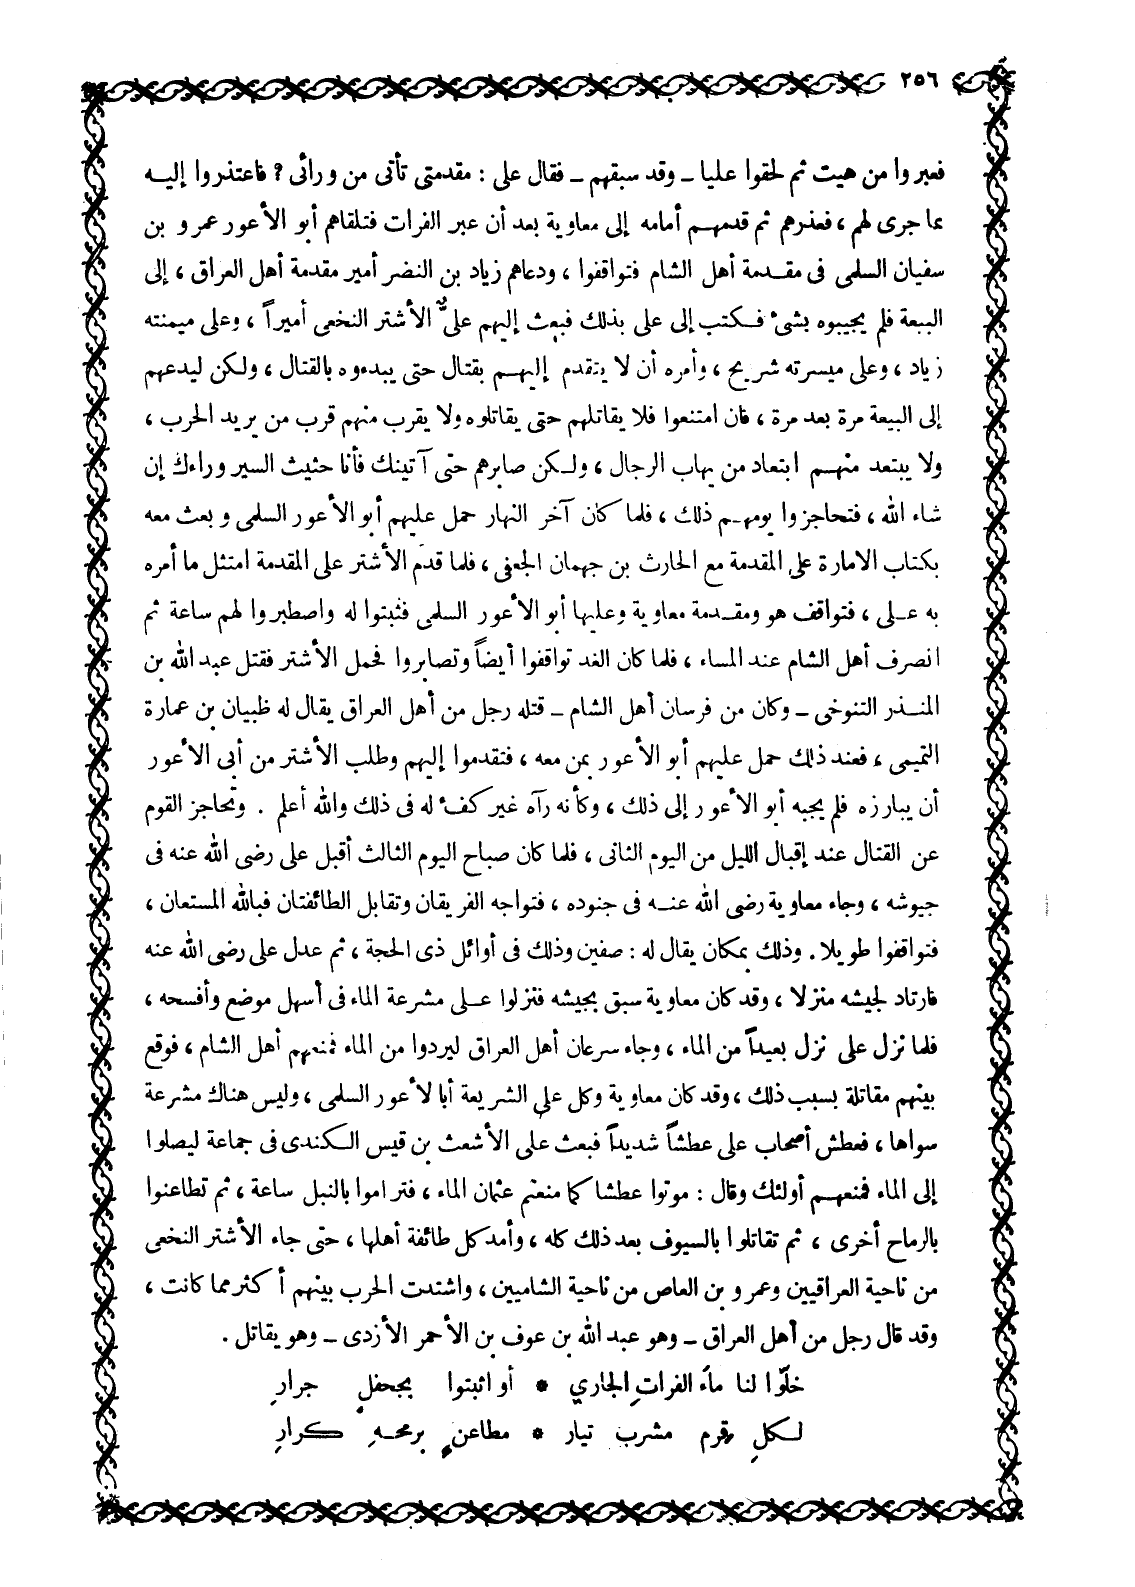 ٢٥٦
فعبروا من هيت ثم لحقوا عليا ـ وقد سبقهم ـ فقال على : مقدمتى تأتى من ورائى ? فاعتذروا إليه
بما جرى لهم ، فعذرهم ثم قدمهم أمامه إلى معاوية بعد أن عبر الفرات فتلقاهم أبو الأعور عمرو بن
سفيان السلمى فى مقدمة أهل الشام فتواقفوا ، ودعاهم زياد بن النضر أمير مقدمة أهل العراق ، إلى
البيعة فلم يجيبوه بشئ فكتب إلى على بذلك فبعث إليهم علىٌّ الأشتر النخعى أميراً ، وعلى ميمنته
زياد ، وعلى ميسرته شريح ، وأمره أن لا يتقدم إليهم بقتال حتى يبدءوه بالقتال ، ولكن ليدعهم
إلى البيعة مرة بعد مرة ، فان امتنعوا فلا يقاتلهم حتى يقاتلوه ولا يقرب منهم قرب من يريد الحرب ،
ولا يبتعد منهم ابتعاد من يهاب الرجال ، ولكن صابرهم حتى آتينك فأنا حثيث السير وراءك إن
شاء الله ، فتحاجزوا يومهم ذلك ، فلما كان آخر النهار حمل عليهم أبو الأعور السلمى وبعث معه
بكتاب الامارة على المقدمة مع الحارث بن جهمان الجعفى ، فلما قدم الأشتر على المقدمة امتثل ما أمره
به على ، فتواقف هو ومقدمة معاوية وعليها أبو الأعور السلمى فثبتوا له واصطبروا لهم ساعة ثم
انصرف أهل الشام عند المساء ، فلما كان الغد تواقفوا أيضاً وتصابروا فحمل الأشتر فقتل عبد الله بن
المنذر التنوخى ـ وكان من فرسان أهل الشام ـ قتله رجل من أهل العراق يقال له ظبيان بن عمارة
التميمى ، فعند ذلك حمل عليهم أبو الأعور بمن معه ، فتقدموا إليهم وطلب الأشتر من أبى الأعور
أن يبارزه فلم يجبه أبو الأعور إلى ذلك ، وكأنه رآه غير كفء له فى ذلك والله أعلم . وتحاجز القوم
عن القتال عند إقبال الليل من اليوم الثانى ، فلما كان صباح اليوم الثالث أقبل على رضى الله عنه فى
جيوشه ، وجاء معاوية رضى الله عنه فى جنوده ، فتواجه الفريقان وتقابل الطائفتان فبالله المستعان ،
فتواقفوا طويلا . وذلك بمكان يقال له : صفين وذلك فى أوائل ذى الحجة ، ثم عدل على رضى الله عنه
فارتاد لجيشه منزلا ، وقد كان معاوية سبق بجيشه فنزلوا على مشرعة الماء فى أسهل موضع وأفسحه ،
فلما نزل على نزل بعيداً من الماء ، وجاء سرعان أهل العراق ليردوا من الماء فمنعهم أهل الشام ، فوقع
بينهم مقاتلة بسبب ذلك ، وقد كان معاوية وكل على الشريعة أبا لأعور السلمى ، وليس هناك مشرعة
سواها ، فعطش أصحاب على عطشاً شديداً فبعث على الأشعث بن قيس الكندى فى جماعة ليصلوا
إلى الماء فمنعهم أولئك وقال : موتوا عطشا كما منعتم عثمان الماء ، فتراموا بالنبل ساعة ، ثم تطاعنوا
بالرماح أخرى ، ثم تقاتلوا بالسيوف بعد ذلك كله ، وأمد كل طائفة أهلها ، حتى جاء الأشتر النخعى
من ناحية العراقيين وعمرو بن العاص من ناحية الشاميين ، واشتدت الحرب بينهم أكثر مما كانت ،
وقد قال رجل من أهل العراق ـ وهو عبد الله بن عوف بن الأحمر الأزدى ـ وهو يقاتل .
خلّوا لنا ماء الفراتِ الجاري * أو اثبتوا بجحفلٍ جرارِ
لكلِ قرم مشرب تيار * مطاعنٍ برمحهِ كرارِ